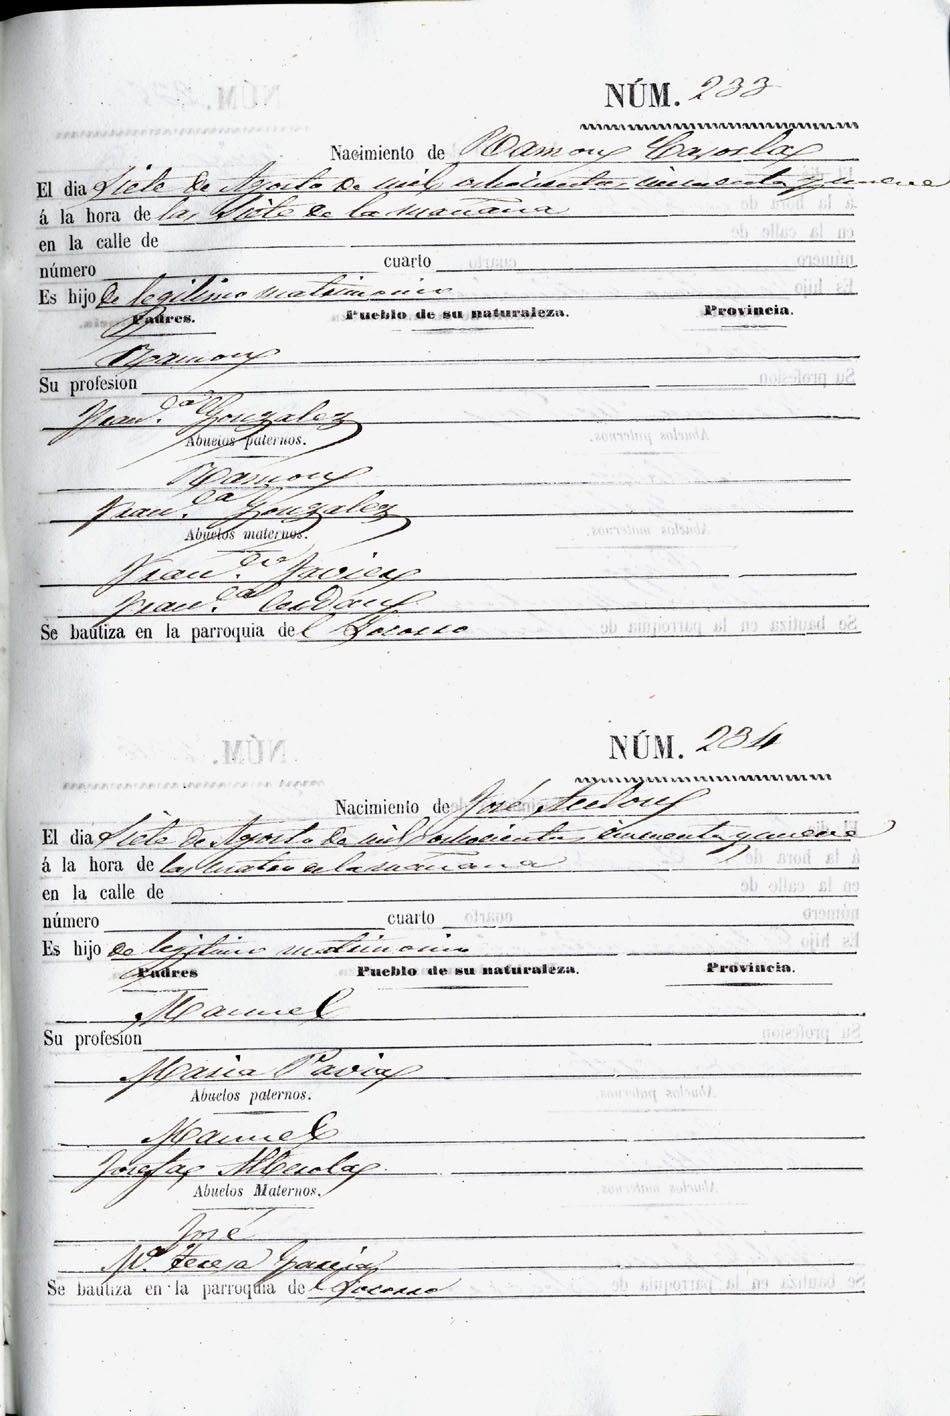 NÚM. 233
Nacimiento de Ramon
El dia Siete de Agosto de mil ochocientos cincuenta y nueve
á la hora de las siete de la mañana
en la calle de
número cuarto
Es hijo de legitimo matrimonio
Padres. Pueblo de su naturaleza. Provincia.
Ramon
Su profesion
Fran.ca Gonzalez
Abuelos paternos.
Ramon
Fran.ca Gonzalez
Abuelos maternos.
Fran.co Javier
Fran.ca
Se bautiza en la parroquia del Socorro
NÚM. 234
Nacimiento de José
El dia Siete de Agosto de mil ochocientos cincuenta y nueve
á la hora de las cuatro de la mañana
en la calle de
número cuarto
Es hijo de legitimo matrimonio
Padres Pueblo de su naturaleza. Provincia.
Manuel
Su profesion
Maria Pavia
Abuelos paternos.
Manuel
Josefa
Abuelos Maternos.
José
M.a Teresa Garcia
Se bautiza en la parroquia del Socorro